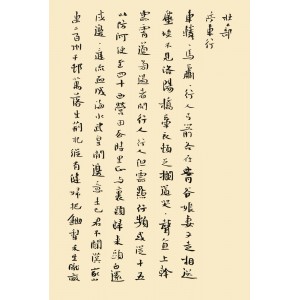 杜甫
兵車行
車轔〻馬蕭〻行人弓箭各在腰爺娘妻子走相送
塵埃不見咸陽橋牽衣頓足攔道哭〻聲直上干
雲霄道旁過者問行人行人但雲點行頻或從十五
北防河便至四十西營田去時里正與裹頭歸來頭白還
戍邊邊庭流血成海水武皇開邊意未已君不聞漢家山
東二百州千村萬落生荊杞縱有健婦把鋤犁禾生隴畝